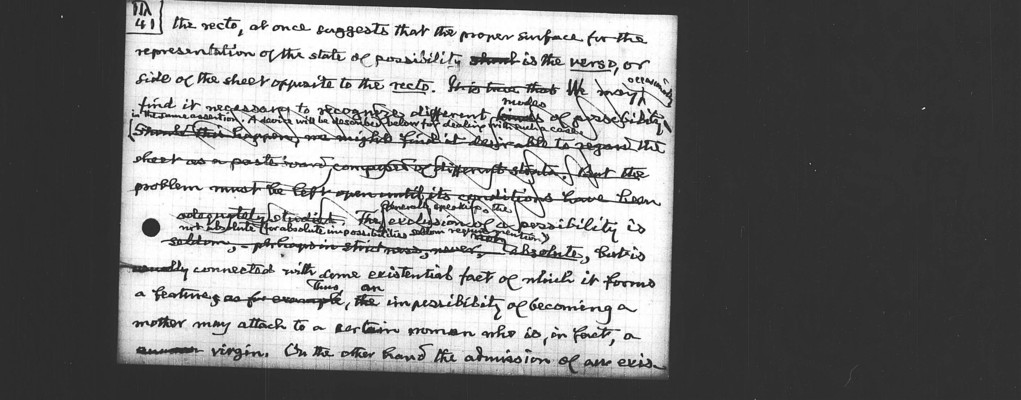 41
the recto, at once suggests that the proper surface for the
representation of the state of possibility is the verso, or
side of the sheet opposite to the recto. It is true that We may occasionally
find it necessary to recognize different kinds modes of possibility
in the same assertion. A device will be described below for dealing with such a case.
Should this happen, we might find it desirable to regard the
sheet as a pasteboard composed of different strata. But the
problem must be left open until its conditions have been
adequately studied. Generally speaking, the The exclusion of a possibility is
not absolute (for absolute impossibilities seldom require mention)
seldom, perhaps in strictness, never, absolute, but is
usually connected with some existential fact of which it forms
a feature; as for example, Thus, the an impossibility of becoming a
mother may attach to a certain woman who is, in fact, a
virgin. On the other hand the admission of an exis-